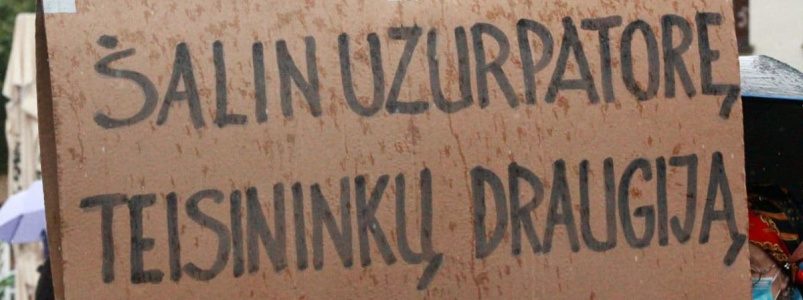 ŠALIN UZURPATORĘ,
TEISININKŲ DRAUGIJĄ,